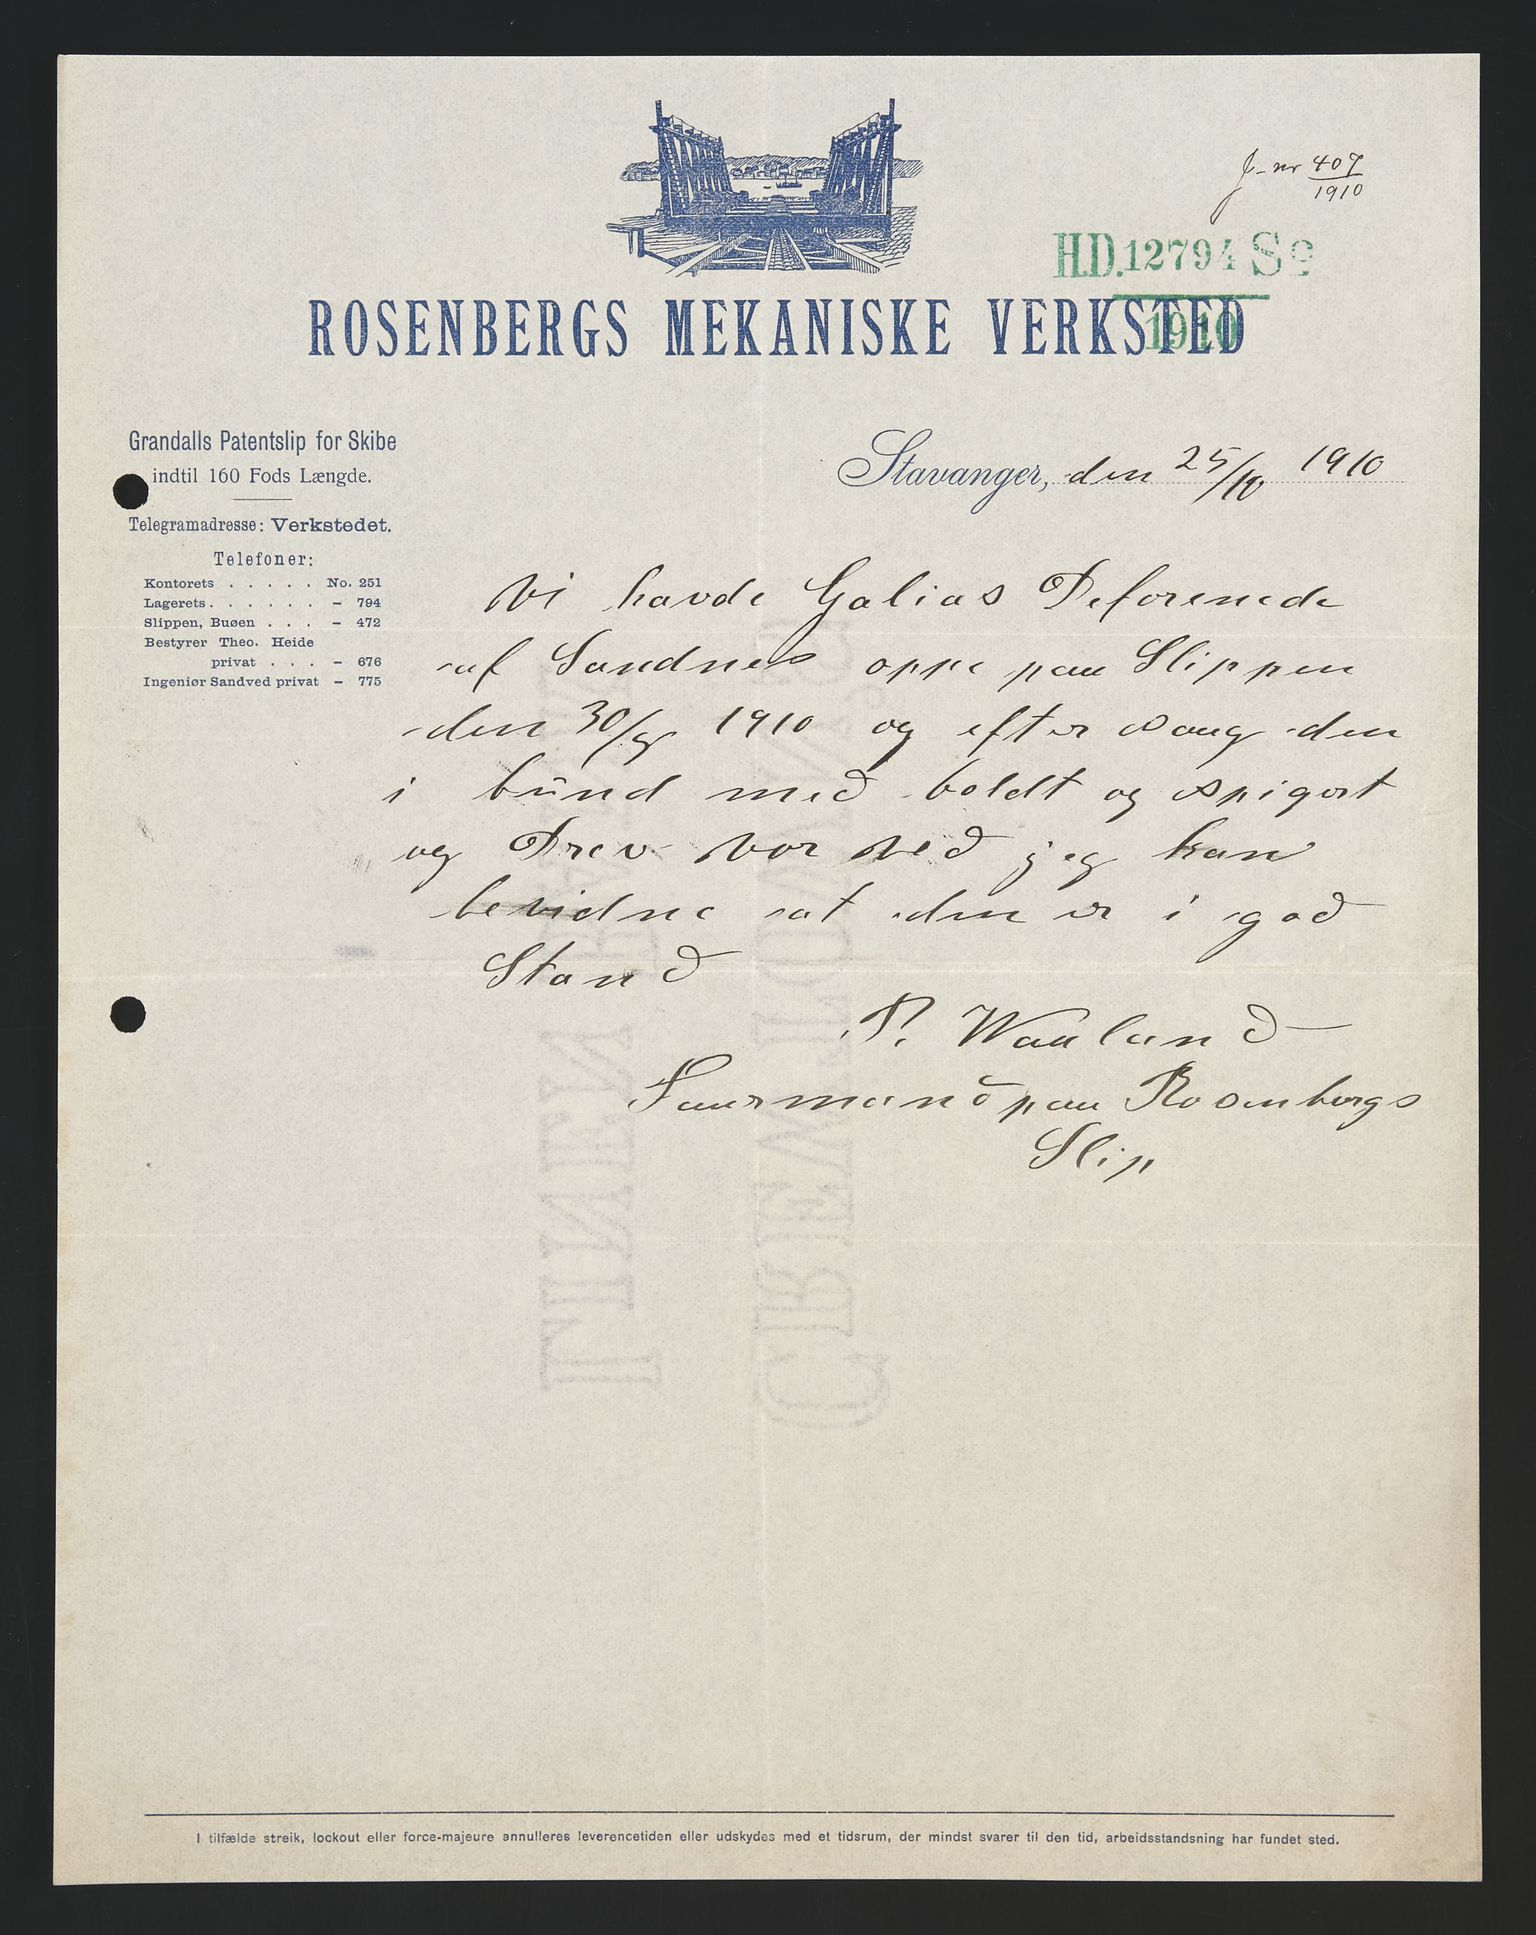 J-nr 407
1910
H.D. 12794 Sø
1910
ROSENBERGS MEKANISKE VERKSTED
Grandalls Patentslip for Skibe
indtil 160 Fods Længde.
Telegramadresse: Verkstedet.
Telefoner:
Kontorets . . . . . No. 251
Lagerets . . . . . . – 794
Slippen, Buøen . . . – 472
Bestyrer Theo. Heide
privat . . . – 676
Ingeniør Sandved privat – 775
Stavanger, den 25/10 1910
Vi havde Galias Deforenede
af Sandnes oppe paa Slippen
den 30/9 1910 og efter saug den
i bund med boldt og spigert
og Drev vor ved jeg kan
bevidne at den er i god
Stand
P. Waaland
Faarmand paa Rosenbergs
Slip
LINEN
I tilfælde streik, lockout eller force-majeure annulleres leverencetiden eller udskydes med et tidsrum, der mindst svarer til den tid, arbeidsstandsning har fundet sted.